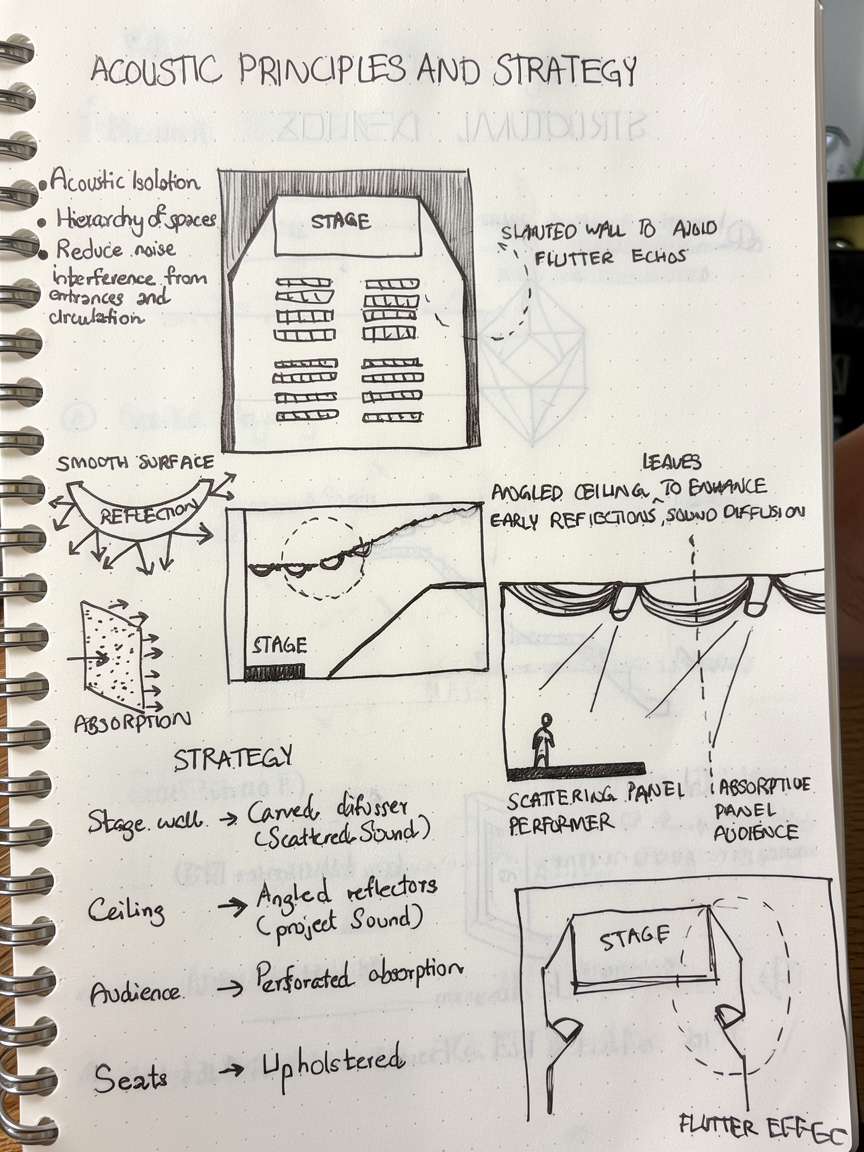 ACOUSTIC PRINCIPLES AND STRATEGY
• Acoustic Isolation
• Hierarchy of spaces
• Reduce noise
interference from
entrances and
circulation
STAGE
SLANTED WALL TO AVOID
FLUTTER ECHOS
SMOOTH SURFACE
REFLECTION
ABSORPTION
STAGE
LEAVES
ANGLED CEILING ^ TO ENHANCE
EARLY REFLECTIONS, SOUND DIFFUSION
SCATTERING PANEL
PERFORMER
ABSORPTIVE
PANEL
AUDIENCE
STRATEGY
Stage wall → Carved difusser
(Scattered Sound)
Ceiling → Angled reflectors
(project Sound)
Audience → Perforated absorption
Seats → Upholstered
STAGE
FLUTTER EFFEC
STRUCTURAL